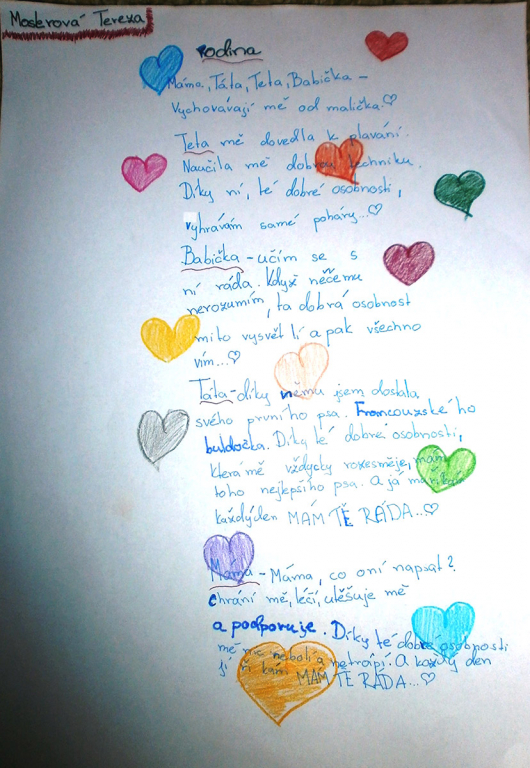 Moserová Tereza
rodina
Máma, Táta, Teta, Babička -
Vychovávají mě od malička.♡
Teta mě dovedla k plavání.
Naučila mě dobrou techniku.
Díky ní, té dobré osobnosti,
vyhrávám samé poháry...♡
Babička - učím se s
ní ráda. Když něčemu
nerozumím, ta dobrá osobnost
mi to vysvětlí a pak všechno
vím...♡
Táta - díky němu jsem dostala
svého prvního psa. Francouzského
buldočka. Díky té dobré osobnosti,
která mě vždycky rozesměje, mám
toho nejlepšího psa. A já mu říkám
každý den MÁM TĚ RÁDA...♡
Máma - Máma, co o ní napsat?
chrání mě, léčí, utěšuje mě
a podporuje. Díky té dobré osobnosti
mě nic nebolí a netrápí. A každý den
jí říkám MÁM TĚ RÁDA...♡